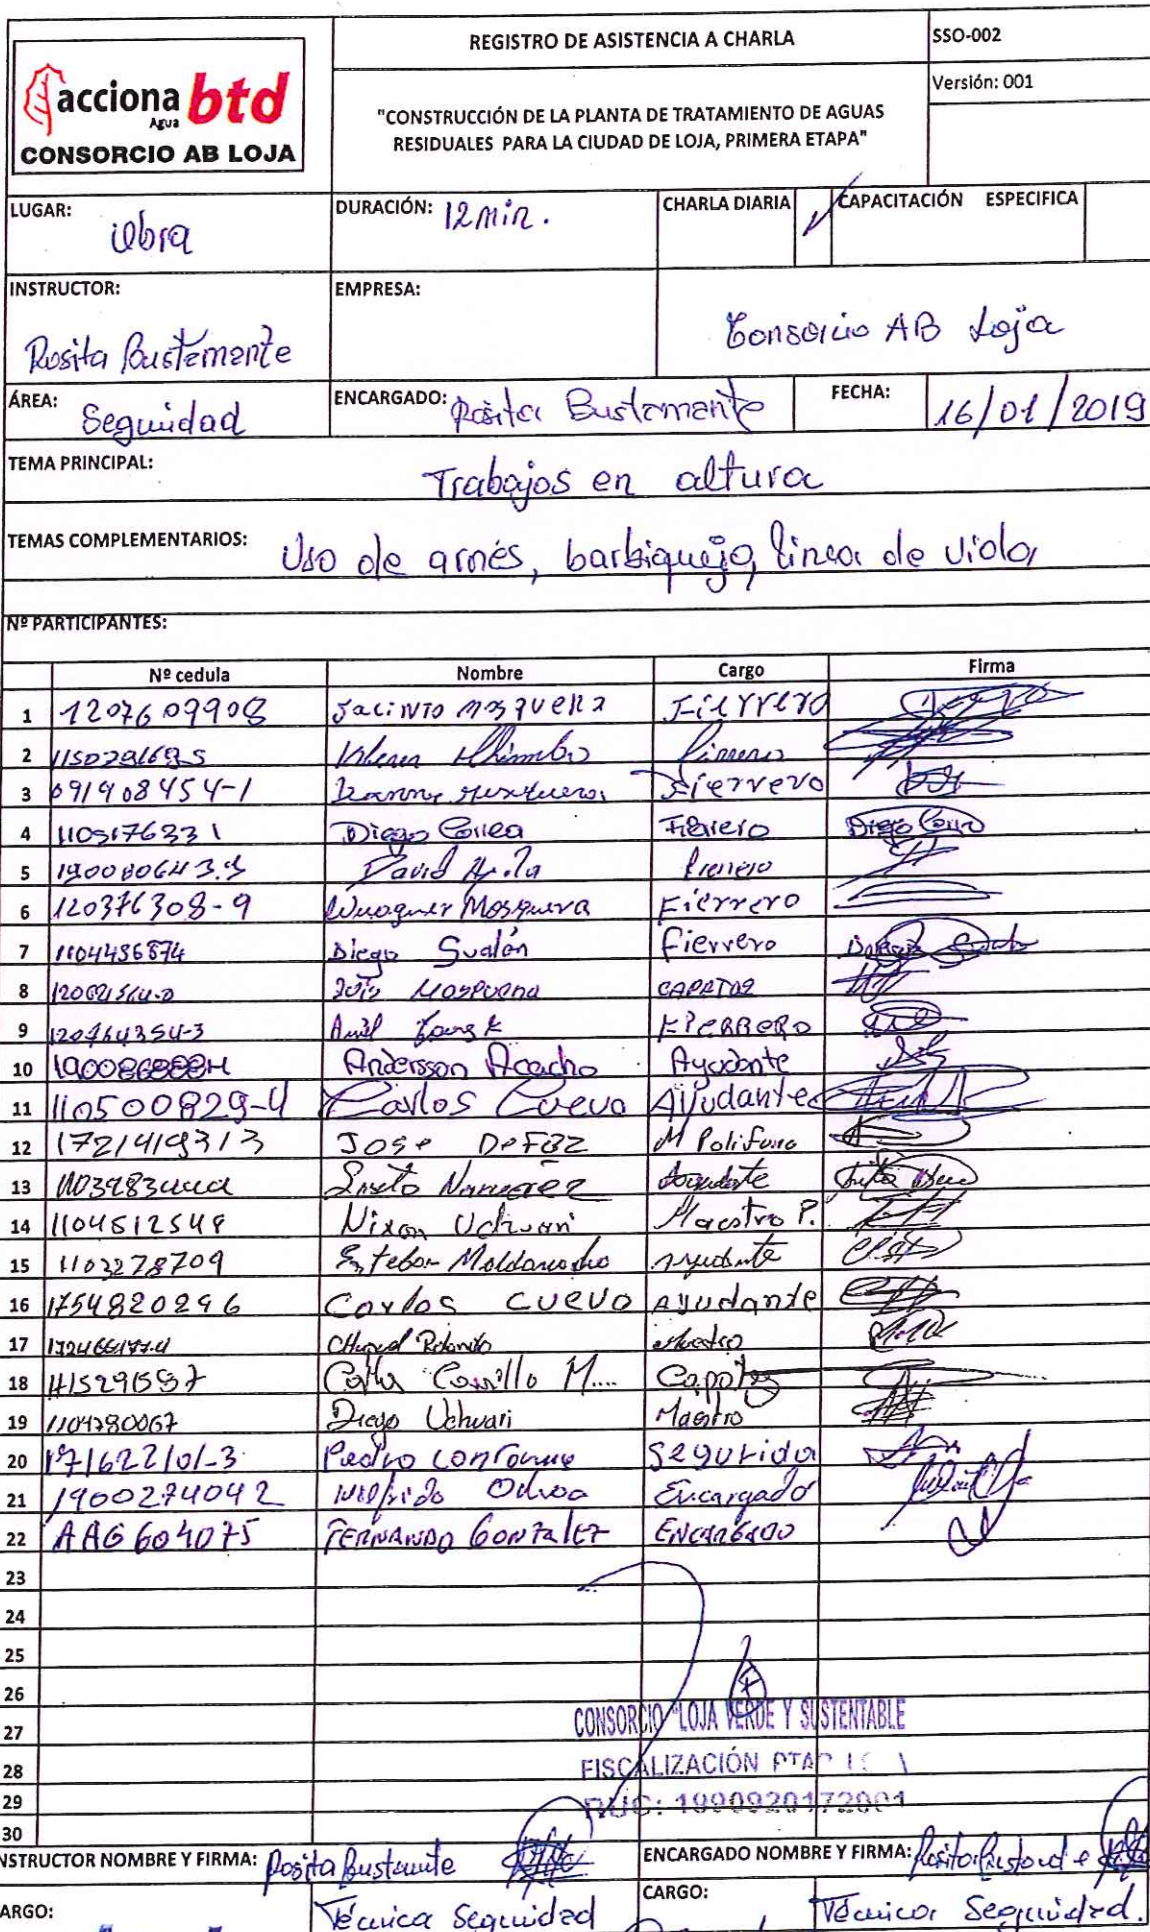 REGISTRO DE ASISTENCIA A CHARLA
SSO-002
acciona Agua btd
CONSORCIO AB LOJA
"CONSTRUCCIÓN DE LA PLANTA DE TRATAMIENTO DE AGUAS
RESIDUALES PARA LA CIUDAD DE LOJA, PRIMERA ETAPA"
Versión: 001
LUGAR: Obra
DURACIÓN: 12 min.
CHARLA DIARIA ✓
CAPACITACIÓN ESPECIFICA
INSTRUCTOR: Rosita Bustamante
EMPRESA: Consorcio AB Loja
ÁREA: Seguridad
ENCARGADO: Rosita Bustamante
FECHA: 16/01/2019
TEMA PRINCIPAL: Trabajos en altura
TEMAS COMPLEMENTARIOS: Uso de arnés, barbiquejo, linea de vida
Nº PARTICIPANTES:
Nº cedula Nombre Cargo Firma
1 1207609908 Jacinto Mosquera Fierrero
2
3 091908454-1 Fierrero
4 110517633 1 Diego Correa Fierrero Diego Correa
5 David
6 120376308-9 Wuagner Mosquera Fierrero
7 1104436874 Diego Gualán Fierrero
8 Luis Mosquera CAPATAZ
9 120764354-3 FIERRERO
10 Andersson Ayudante
11 110500829-4 Carlos Cueva Ayudante
12 1721419313 Jose M
13 Ayudante
14 1104512548 Nixon Uchuari Maestro P.
15 1103278709 Esteban Maldonado Ayudante
16 1754820296 Carlos CUEVA Ayudante
17 Maestro
18 Carrillo M.... Capataz
19 1104780067 Diego Uchuari Maestro
20 171622101-3 Pedro Segurida
21 1900274042 Wilfrido Ochoa Encargado
22 AAG604075 FERNANDO GONZALEZ ENCARGADO
23
24
25
26
27
28
29
30
CONSORCIO "LOJA VERDE Y SUSTENTABLE
FISCALIZACIÓN PTAR
RUC: 1990920172001
INSTRUCTOR NOMBRE Y FIRMA: Rosita Bustamante
ENCARGADO NOMBRE Y FIRMA: Rosita
CARGO: Técnica Seguridad
CARGO: Técnica Seguridad.